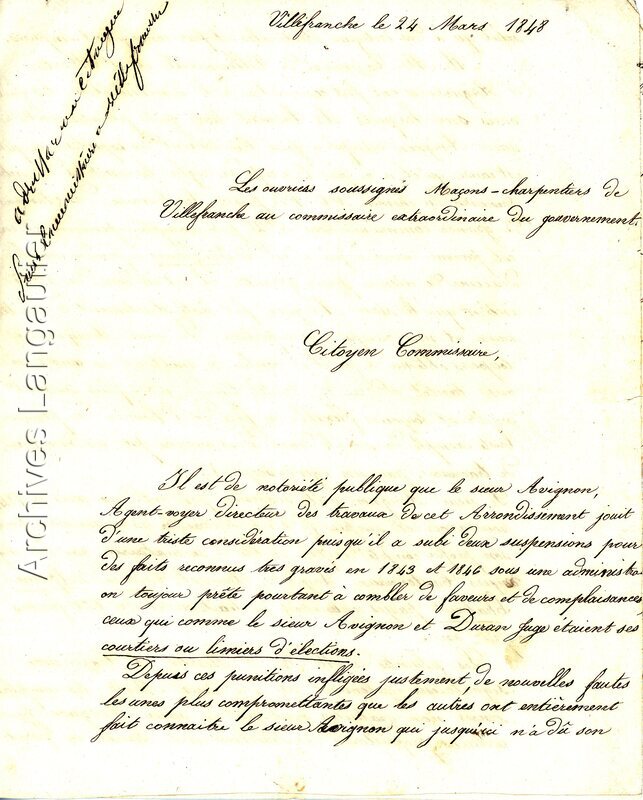 Villefranche le 24 Mars 1848
Les ouvriers soussignés Maçons-charpentiers de
Villefranche au commissaire extraordinaire du gouvernement.
Citoyen Commissaire,
Il est de notoriété publique que le sieur Avignon,
Agent-voyer directeur des travaux de cet Arrondissement jouit
d'une triste considération puisqu'il a subi deux suspensions pour
des faits reconnus très graves en 1843 et 1846 sous une administra-
on toujour prête pourtant à combler de faveurs et de complaisances
ceux qui comme le sieur Avignon et Duran Juge étaient ses
courtiers ou limiers d'élections.
Depuis ces punitions infligées justement, de nouvelles fautes
les unes plus compromettantes que les autres ont entièrement
fait connaitre le sieur Avignon qui jusqu'ici n'a dû son
Archives Langautier